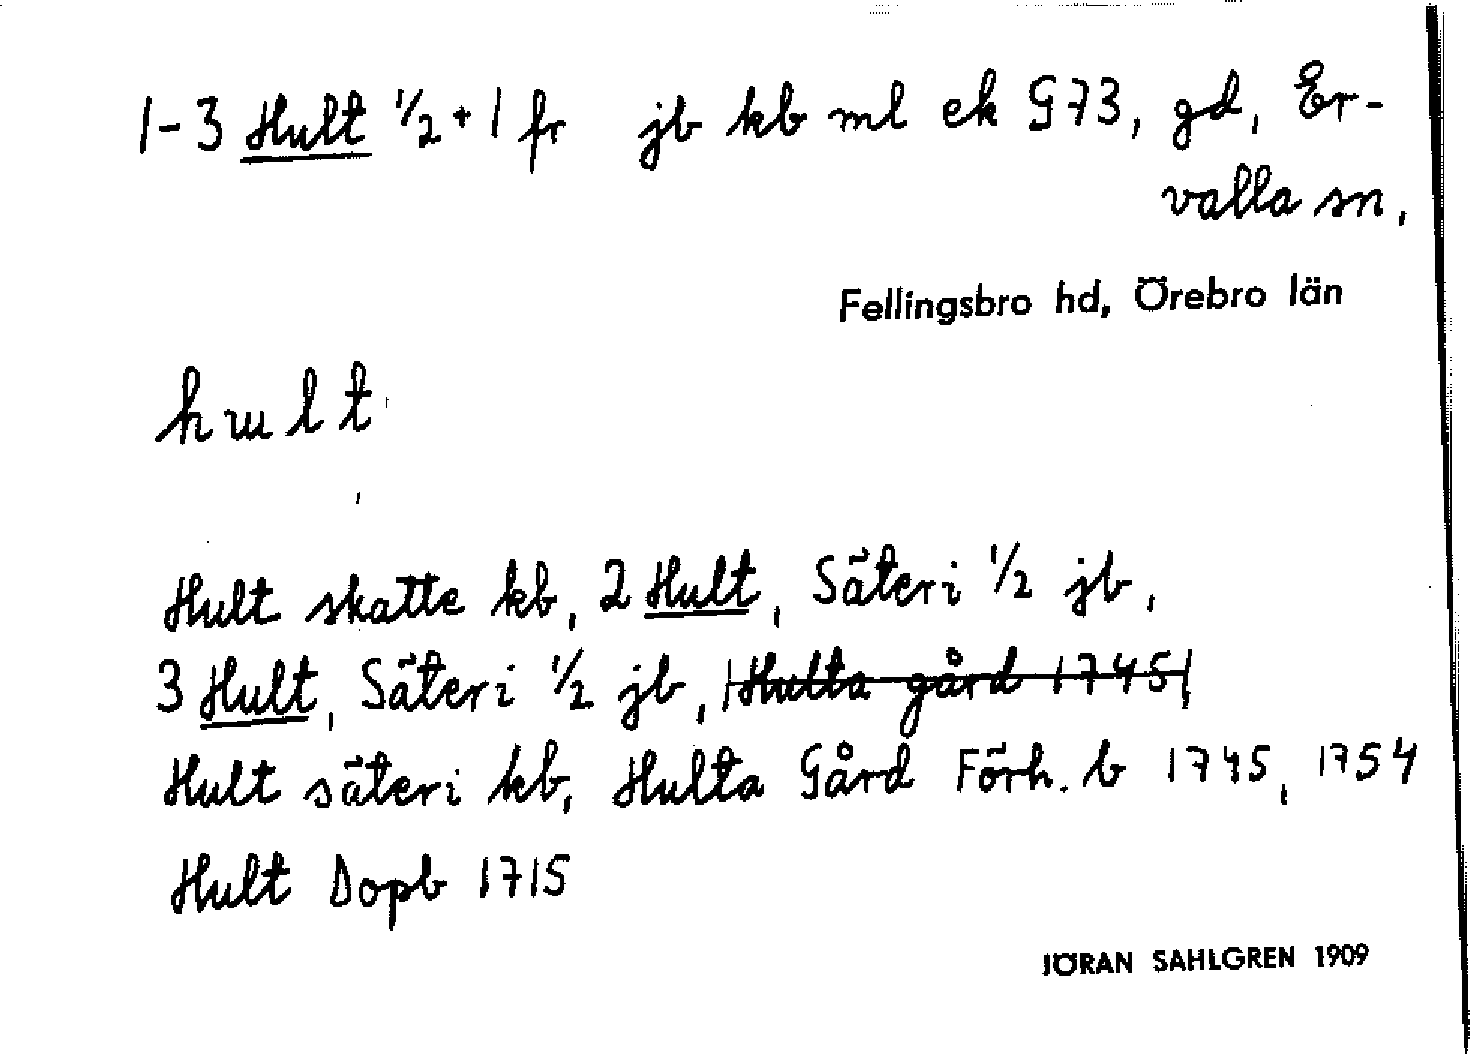 1-3 Hult ½ + 1 fr jb kb ml ek G73, gd, Er-
valla sn,
Fellingsbro hd, Örebro län
hult
Hult skatte kb, 2 Hult, Säteri ½ jb,
3 Hult, Säteri ½ jb, Hulta gård 1745
Hult säteri kb, Hulta Gård Förh. b 1745, 1754
Hult Dopb 1715
JÖRAN SAHLGREN 1909